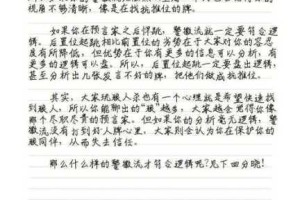 视压不够清晰，像是在找抗推位的牌。
如果你在预言家之后悍跳，警徽流就一定要符合逻辑。后置位起跳相比前置位的劣势在于大家对你的容忍度有所降低，但优势在于你有更多的信息可以分析，更多的逻辑可以盘。所以，后置位起跳一定要盘出逻辑，甚至分析出几张发言不好的牌，把他们做成抗推位。
其实，大家玩狼人杀也有一个心理就是希望快速找到狼人，所以你能聊出的“狼”越多，大家越会觉得你像那个尽职尽责的预言家。但如果你的分析毫无逻辑，警徽流没有打到好人牌心里，大家则会认为你在保护你的狼同伴，从而失去信任。
那么什么样的警徽流才符合逻辑呢？见下回分晓！